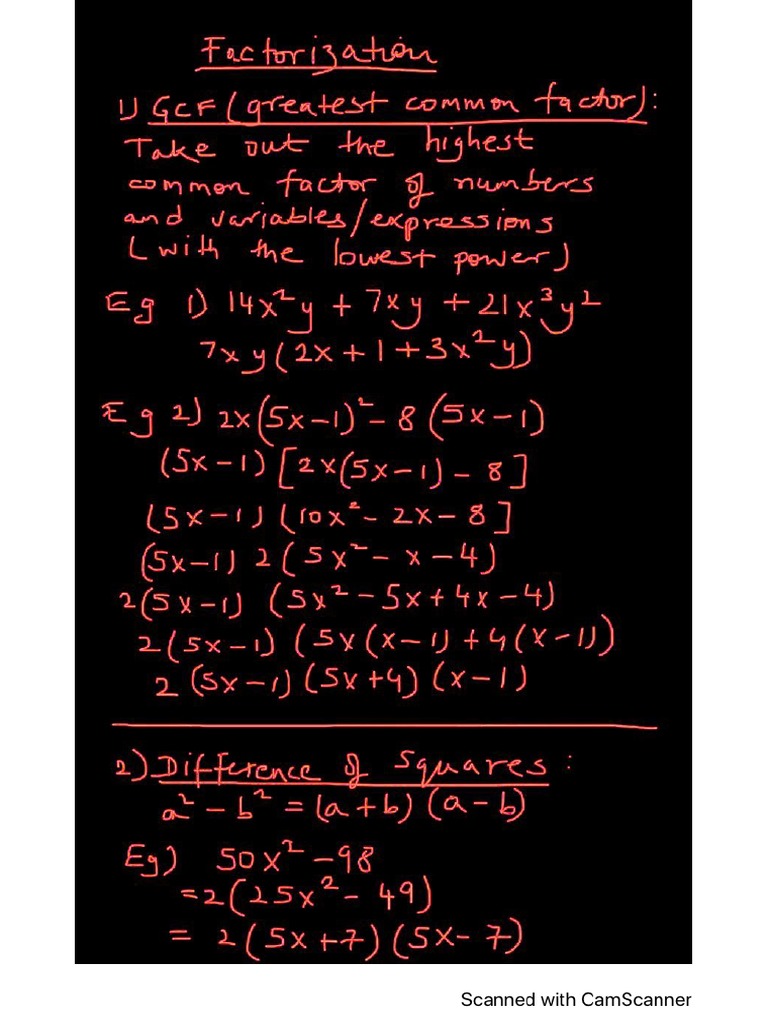 Factorization
1) GCF (greatest common factor):
Take out the highest
common factor of numbers
and variables/expressions
(with the lowest power)
Eg 1) 14x²y + 7xy + 21x³y²
7xy(2x + 1 + 3x²y)
Eg 2) 2x(5x-1)² - 8(5x-1)
(5x-1)[2x(5x-1) - 8]
(5x-1)(10x² - 2x - 8]
(5x-1) 2(5x² - x - 4)
2(5x-1) (5x² - 5x + 4x - 4)
2(5x-1) (5x(x-1) + 4(x-1))
2 (5x-1) (5x+4) (x-1)
2) Difference of Squares:
a² - b² = (a+b) (a-b)
Eg) 50x² - 98
= 2(25x² - 49)
= 2(5x+7)(5x-7)
Scanned with CamScanner